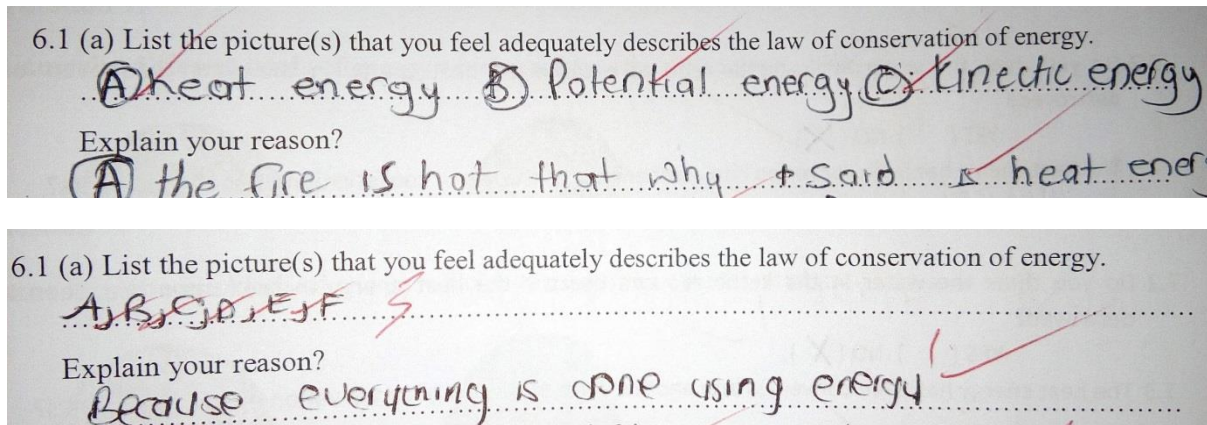 6.1 (a) List the picture(s) that you feel adequately describes the law of conservation of energy.
(A) heat energy (B) Potential energy (C): Kinectic energy
Explain your reason?
(A) the fire is hot that why I said is heat ener
6.1 (a) List the picture(s) that you feel adequately describes the law of conservation of energy.
A, B, C, D, E, F 5
Explain your reason?
1
Because everything is done using energy